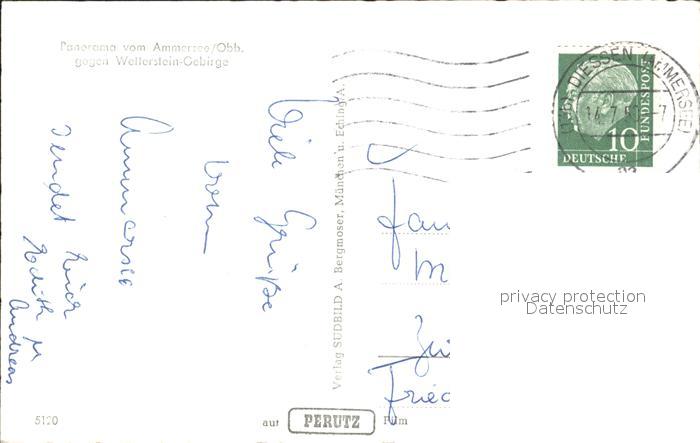 Panorama vom Ammersee/Obb.
gegen Wetterstein-Gebirge
Viele Grüße
vom
Ammersee
sendet Euch
Edith M
Andreas
Verlag SÜDBILD A. Bergmoser, München u. Eching/A.
DIESSEN (AMMERSEE)
10
DEUTSCHE
BUNDESPOST
Fam
M
Fried
privacy protection
Datenschutz
5120
auf PERUTZ Film